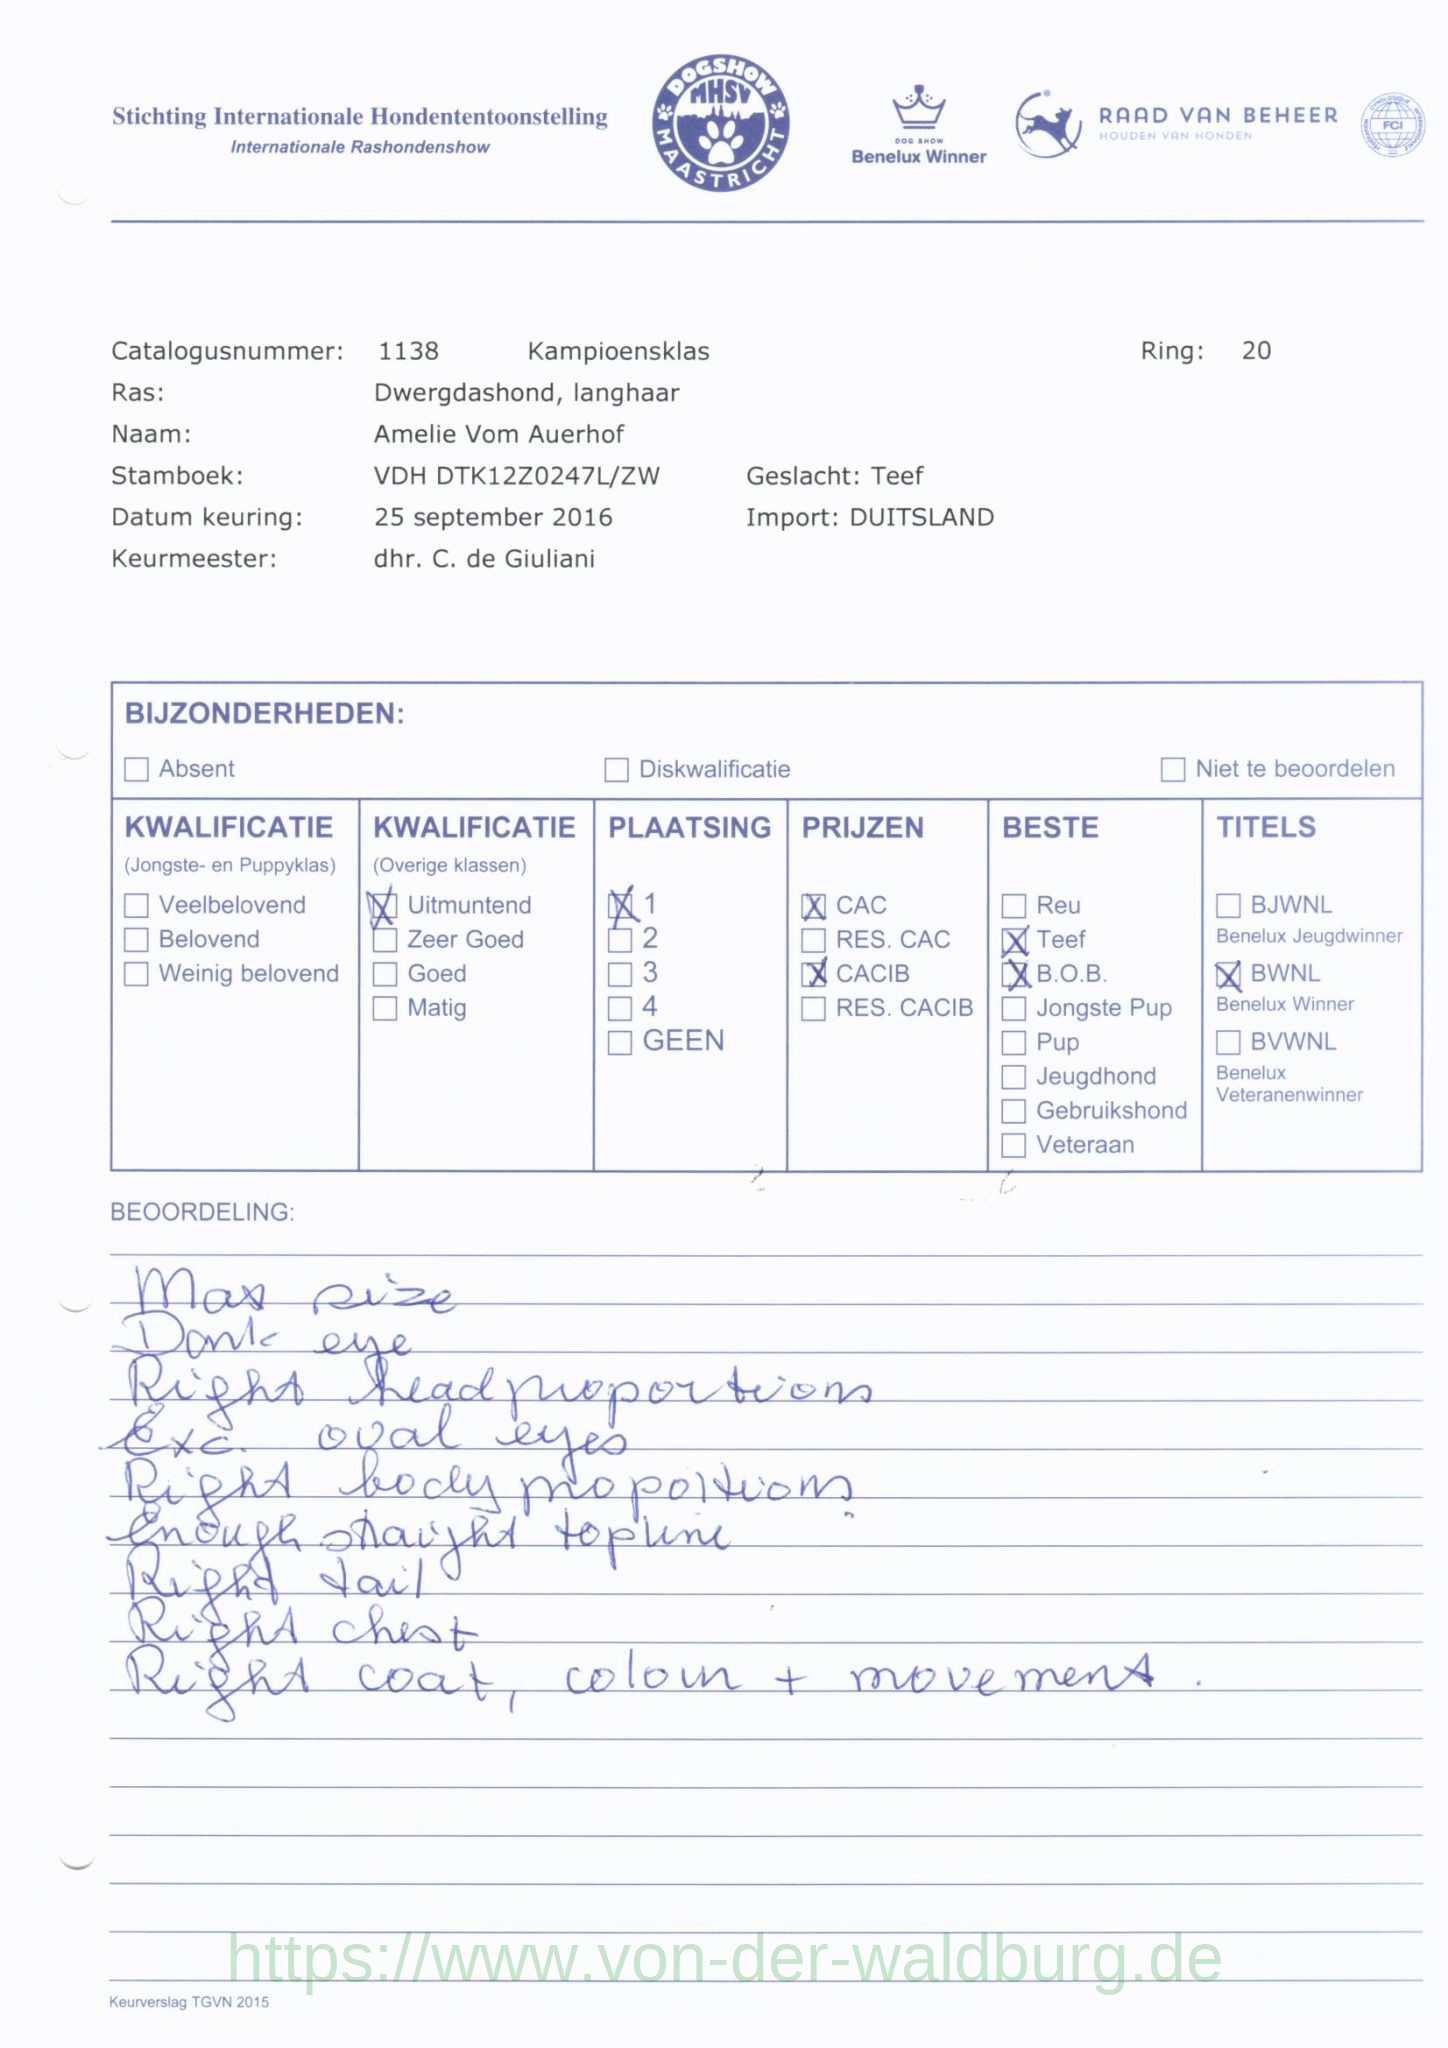 Stichting Internationale Hondententoonstelling
Internationale Rashondenshow
DOGSHOW
MHSV
MAASTRICHT
DOG SHOW
Benelux Winner
RAAD VAN BEHEER
HOUDEN VAN HONDEN
FCI
Catalogusnummer: 1138 Kampioensklas Ring: 20
Ras: Dwergdashond, langhaar
Naam: Amelie Vom Auerhof
Stamboek: VDH DTK12Z0247L/ZW Geslacht: Teef
Datum keuring: 25 september 2016 Import: DUITSLAND
Keurmeester: dhr. C. de Giuliani
BIJZONDERHEDEN:
Absent Diskwalificatie Niet te beoordelen
KWALIFICATIE
(Jongste- en Puppyklas)
Veelbelovend
Belovend
Weinig belovend
KWALIFICATIE
(Overige klassen)
Uitmuntend
Zeer Goed
Goed
Matig
PLAATSING
1
2
3
4
GEEN
PRIJZEN
CAC
RES. CAC
CACIB
RES. CACIB
BESTE
Reu
Teef
B.O.B.
Jongste Pup
Pup
Jeugdhond
Gebruikshond
Veteraan
TITELS
BJWNL
Benelux Jeugdwinner
BWNL
Benelux Winner
BVWNL
Benelux
Veteranenwinner
BEOORDELING:
Max size
Dark eye
Right headproportions
Exc. oval eyes
Right body proportions
Enough straight topline
Right tail
Right chest
Right coat, colour + movement.
https://www.von-der-waldburg.de
Keurverslag TGVN 2015